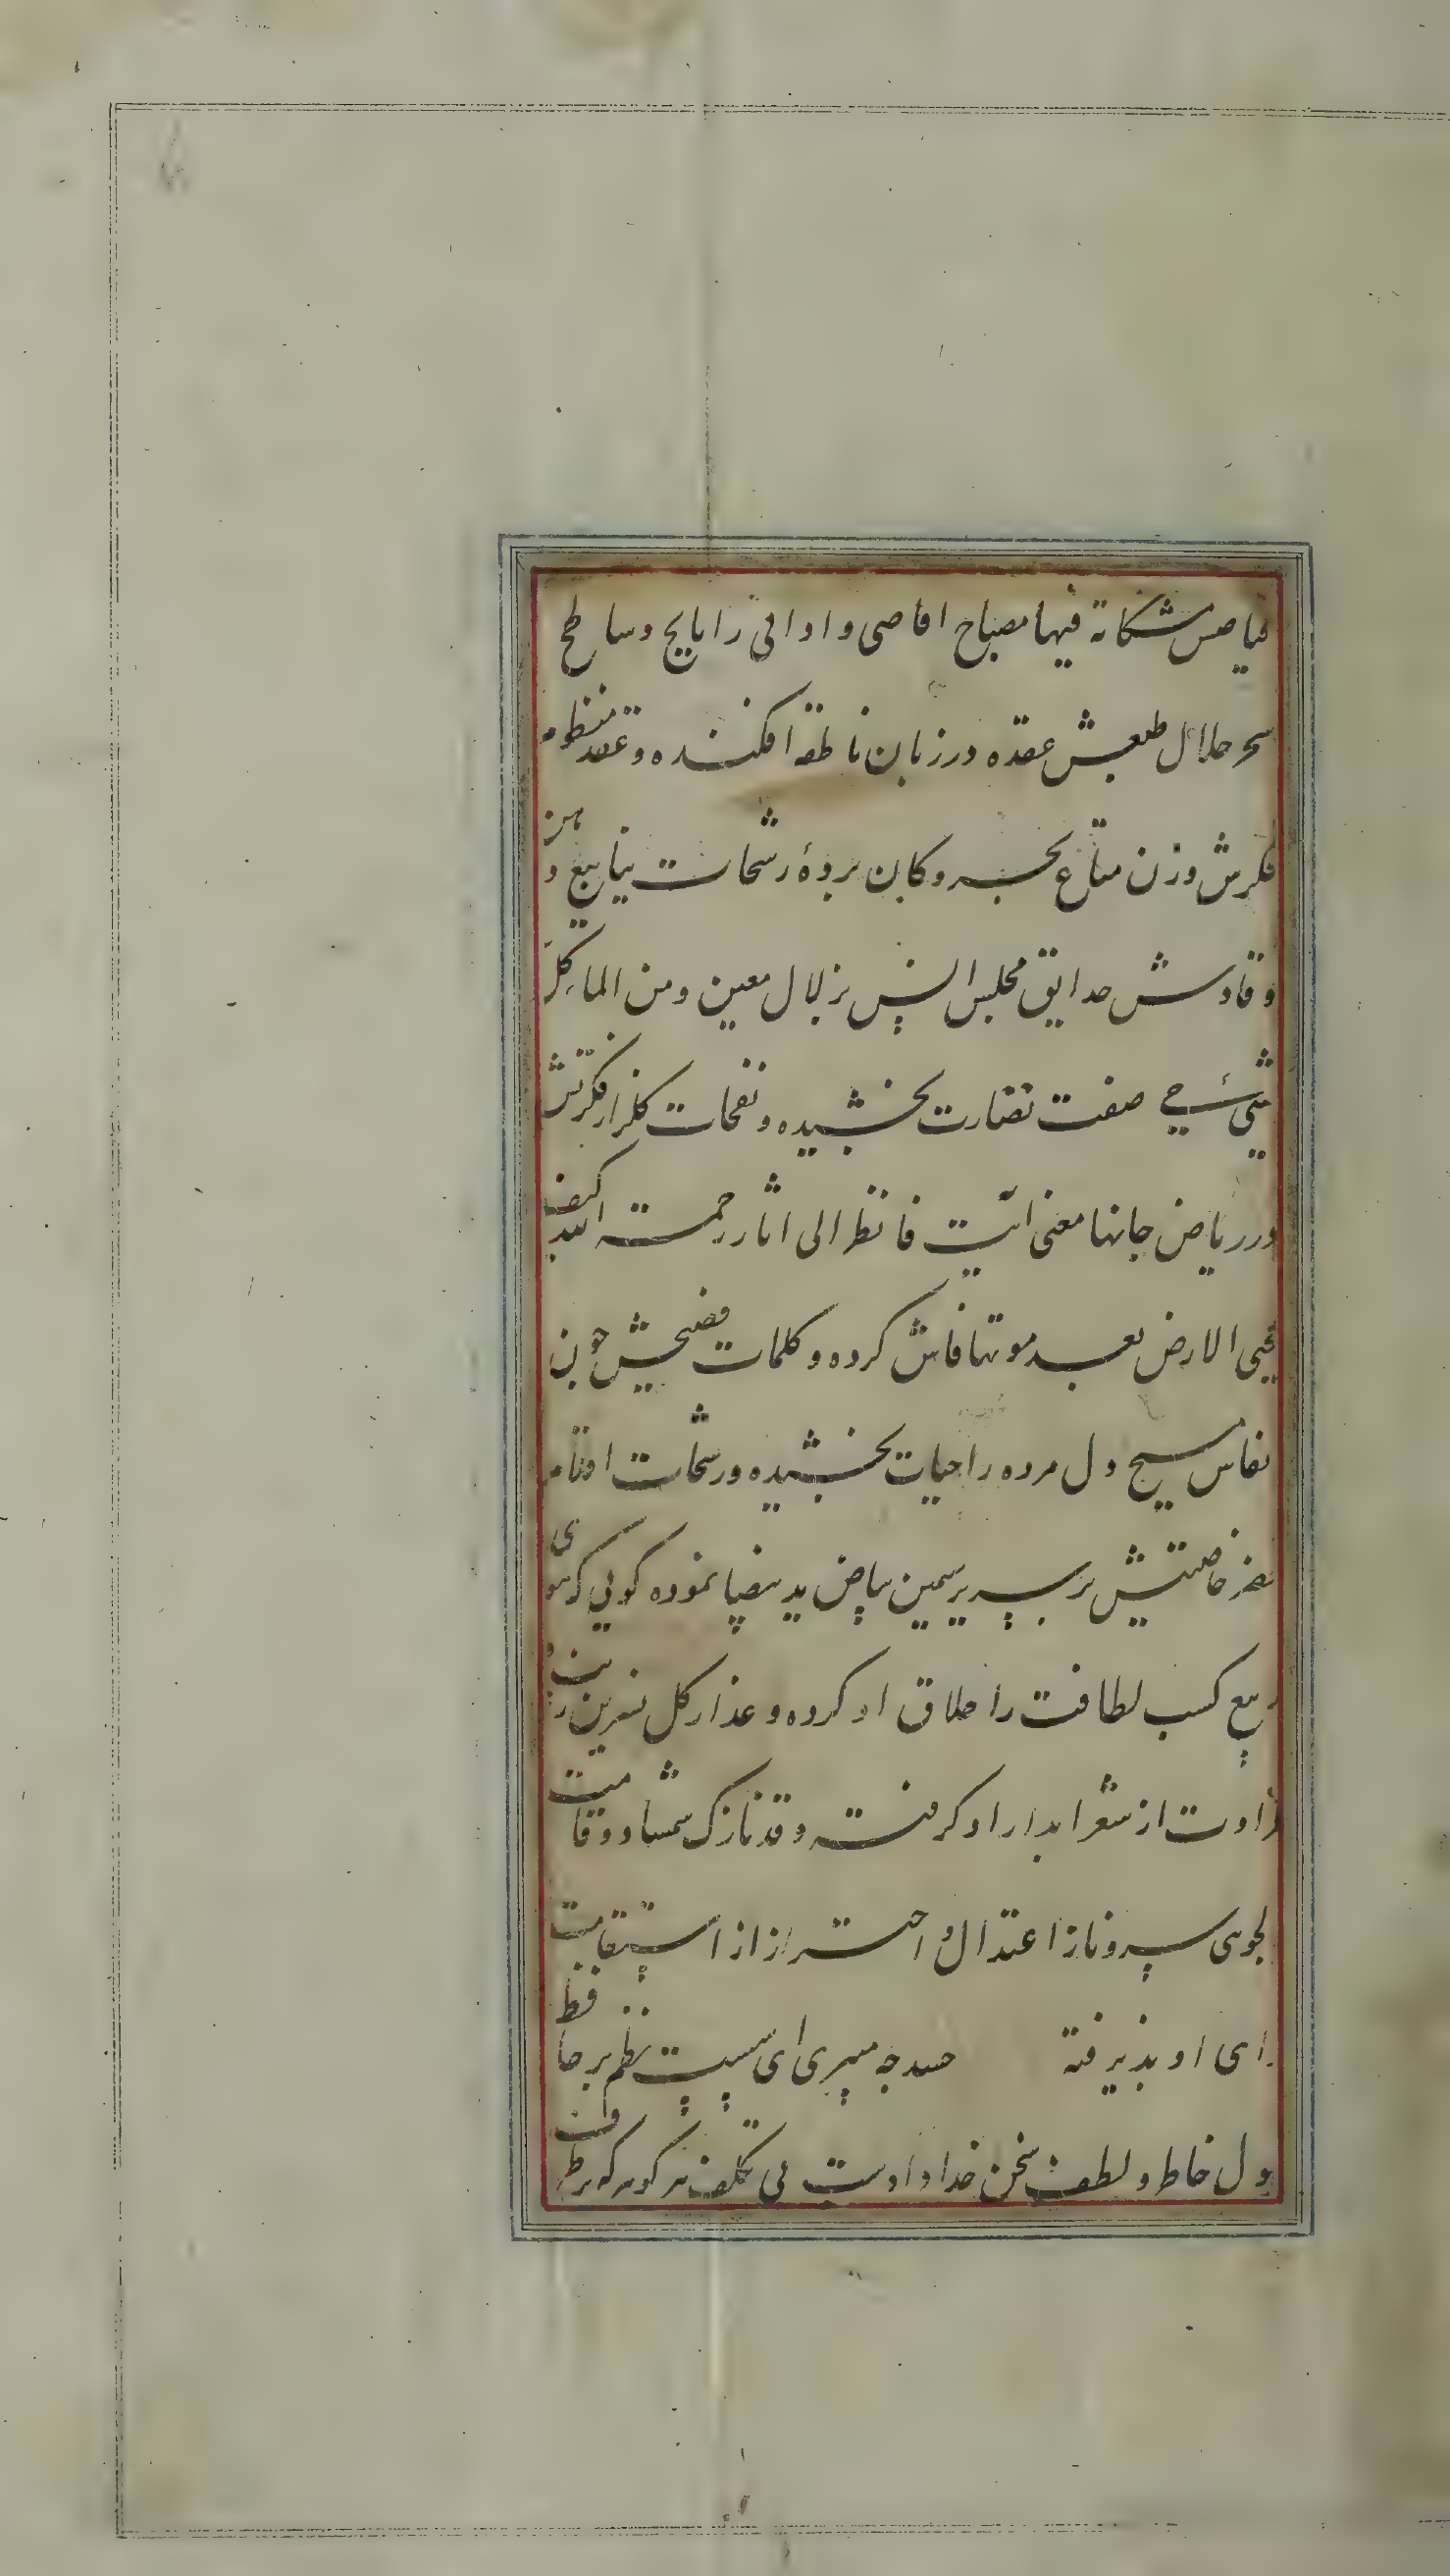 فیاض مشکاة فیها مصباح اقاصی و ادانی را بایح و ساطح
سحر حلال طبعش عقده در زبان ناطقه افکنده و عقد منظوم
فکرش وزن متاع بحر و کان برده رشحات ینابیع ذهن
وقادش حدایق مجلس انس بزلال معین و من الماء کل
شیء حی صفت نضارت بخشیده و نفحات کلزار فکرتش
در ریاض جانها معنی ایت فانظر الی اثار رحمت الله کیف
یحیی الارض بعد موتها فاش کرده و کلمات فصیحش چون
نفاس مسیح دل مرده را حیات بخشیده و رشحات اقلام
خضر خاصیتش بر سریر سیمین بیاض ید بیضا نموده کویی که هوای
ربیع کسب لطافت را خلاق او کرده و عذار کل نسرین زیب و
طراوت از شعر ابدار او کرفته و قد نازک شمشاد و قامت
لجوی سرو ناز اعتدال و احتراز از استقامت
رای او پذیرفته حسد چه میبری ای سست نظم بر حافظ
ول خاطر و لطف سخن خدا دادست بی تکلف هر کوهر که